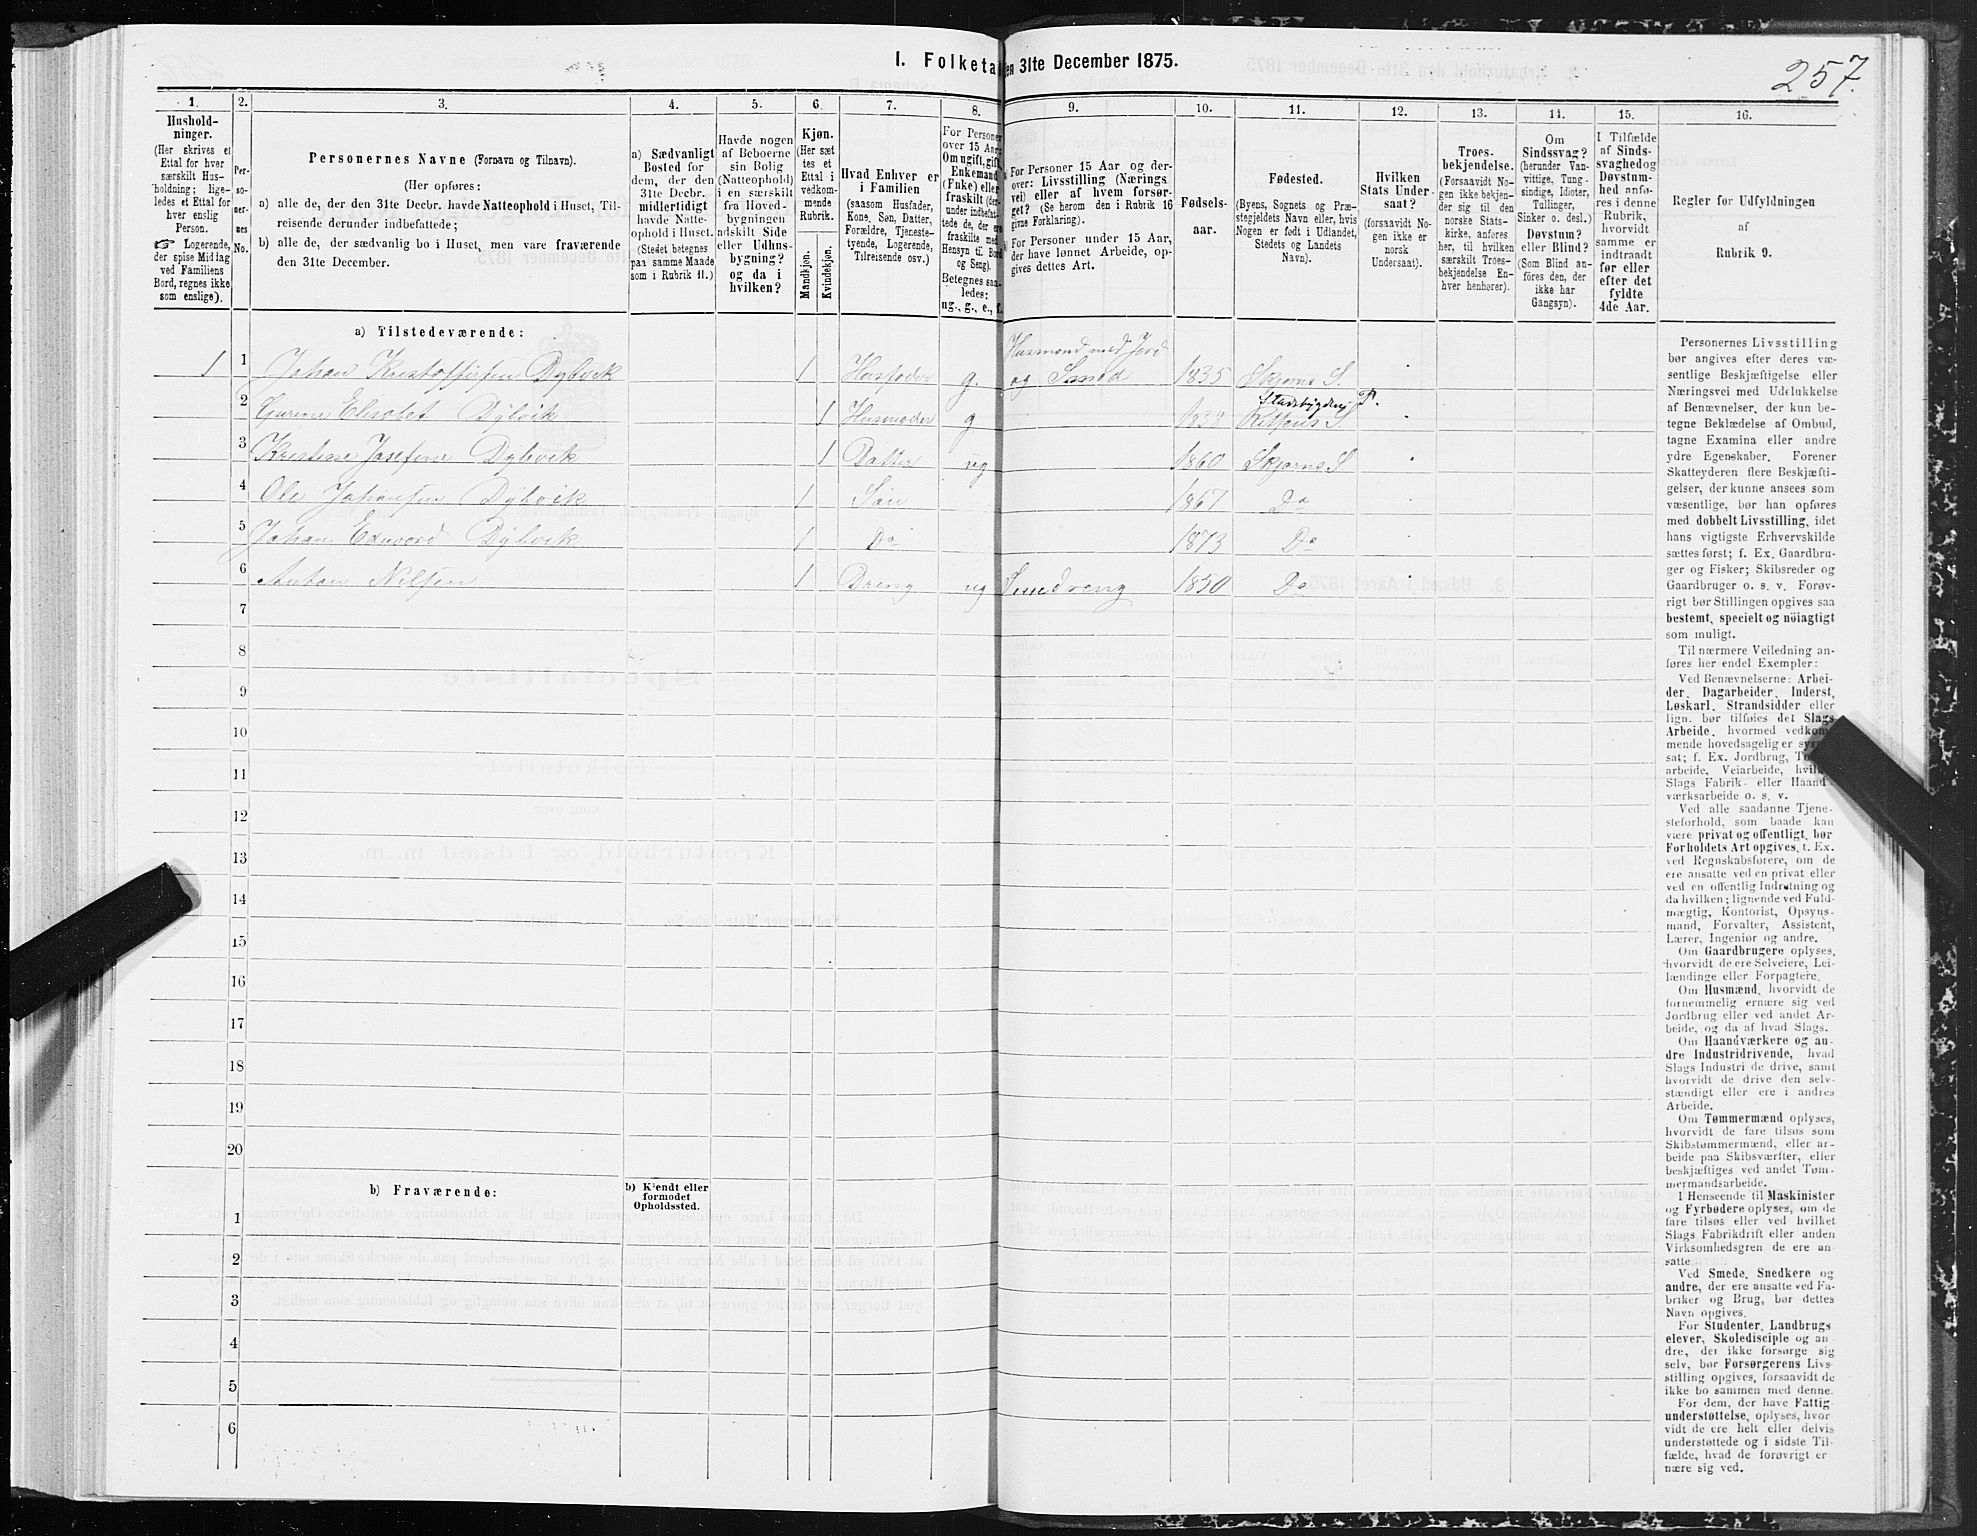 I. Folketa en 31te December 1875.
257.
1. 2. 3. 4. 5. 6. 7. 8. 9. 10. 11. 12. 13. 14. 15. 16.
Hushold-
ninger.
(Her skrives et
Ettal for hver
særskilt Hus-
holdning; lige-
ledes et Ettal for
hver enslig
Person.
☞ Logerende,
der spise Middag
ved Familiens
Bord, regnes ikke
som enslige).
Per-
so-
ner-
nes
No.
Personernes Navne (Fornavn og Tilnavn).
(Her opføres:
a) alle de, der den 31te Decbr. havde Natteophold i Huset, Til-
reisende derunder indbefattede;
b) alle de, der sædvanlig bo i Huset, men vare fraværende
den 31te December.
a) Sædvanligt
Bosted for
dem, der den
31te Decbr.
midlertidigt
havde Natte-
ophold i Huset.
(Stedet betegnes
paa samme Maade
som i Rubrik 11.)
Havde nogen
af Beboerne
sin Bolig
(Natteophold)
i en særskilt
fra Hoved-
bygningen
adskilt Side
eller Udhus-
bygning?
og da i
hvilken?
Kjøn.
(Her sæt-
tes et
Ettal i
vedkom-
mende
Rubrik.
Mandkjøn.
Kvindekjøn.
Hvad Enhver er
i Familien
(saasom Husfader,
Kone, Søn, Datter,
Forældre, Tjeneste-
tyende, Logerende,
Tilreisende osv.)
For Personer
over 15 Aar:
Om ugift, gift,
Enkemand
(Enke) eller
fraskilt (der-
under indbefat-
tede de, der ere
fraskilte med
Hensyn til Bord
og Seng).
Betegnes saa-
ledes:
ug., g., e., f.
For Personer 15 Aar og der-
over: Livsstilling (Nærings-
vei) eller af hvem forsør-
get? (Se herom den i Rubrik 16
givne Forklaring).
For Personer under 15 Aar,
der have lønnet Arbeide, op-
gives dettes Art.
Fødsels-
aar.
Fødested.
(Byens, Sognets og Præ-
stegjeldets Navn eller, hvis
Nogen er født i Udlandet,
Stedets og Landets
Navn).
Hvilken
Stats Under-
saat?
(forsaavidt No-
gen ikke er
norsk
Undersaat).
Troes-
bekjendelse.
(Forsaavidt No-
gen ikke bekjen-
der sig til den
norske Stats-
kirke, anføres
her, til hvilken
særskilt Troes-
bekjendelse En-
hver henhører).
Om
Sindssvag?
(herunder Van-
vittige, Tung-
sindige, Idioter,
Tullinger,
Sinker o. desl.)
Døvstum?
eller Blind?
(Som Blind an-
føres den, der
ikke har
Gangsyn).
I Tilfælde
af Sinds-
svaghed og
Døvstum-
hed anfø-
res i denne
Rubrik,
hvorvidt
samme er
indtraadt
før eller
efter det
fyldte
4de Aar.
Regler for Udfyldningen
af
Rubrik 9.
a) Tilstedeværende:
Husmand med Jord
1 1 Johan Kristoffersen Dybvik 1 Husfader g. og Smed 1835 Skjørns S.
Stadsbygdens P.
2 Gurine Elisabet Dybvik 1 Husmoder g Rissens S.
3 Kristine Josefine Dybvik 1 Datter ug 1860 Skjørns S
4 Ole Johansen Dybvik 1 Søn 1867 Do
5 Johan Edvard Dybvik 1 Do 1873 Do
6 Anton Nilsen 1 Dreng ug Smedreng 1850 Do
7
8
9
10
11
12
13
14
15
16
17
18
19
20
b) Fraværende:
b) Kjendt eller
formodet
Opholdssted.
1
2
3
4
5
6
Personernes Livsstilling
bør angives efter deres væ-
sentlige Beskjæftigelse eller
Næringsvei med Udelukkelse
af Benævnelser, der kun be-
tegne Beklædelse af Ombud,
tagne Examina eller andre
ydre Egenskaber. Forener
Skatteyderen flere Beskjæfti-
gelser, der kunne ansees som
væsentlige, bør han opføres
med dobbelt Livsstilling, idet
hans vigtigste Erhvervskilde
sættes først; f. Ex. Gaardbru-
ger og Fisker; Skibsreder og
Gaardbruger o. s. v. Forøv-
rigt bør Stillingen opgives saa
bestemt, specielt og nöiagtigt
som muligt.
Til nærmere Veiledning an-
føres her endel Exempler:
Ved Benævnelserne: Arbei-
der, Dagarbeider, Inderst,
Løskarl, Strandsidder eller
lign. bør tilføies det Slags
Arbeide, hvormed vedkom-
mende hovedsagelig er syssel-
sat; f. Ex. Jordbrug, T
arbeide, Veiarbeide, hvilket
Slags Fabrik- eller Haand-
værksarbeide o. s. v.
Ved alle saadanne Tjene-
steforhold, som baade kan
være privat og offentligt, bør
Forholdets Art opgives, t. Ex.
ved Regnskabsførere, om de
ere ansatte ved en privat eller
ved en offentlig Indretning og
da hvilken; lignende ved Fuld-
mægtig, Kontorist, Opsyns-
mand, Forvalter, Assistent,
Lærer, Ingeniør og andre.
Om Gaardbrugere oplyses,
hvorvidt de ere Selveiere, Lei-
lændinge eller Forpagtere.
Om Husmænd, hvorvidt de
fornemmelig ernære sig ved
Jordbrug eller ved andet Ar-
beide, og da af hvad Slags.
Om Haandværkere og an-
dre Industridrivende, hvad
Slags Industri de drive, samt
hvorvidt de drive den selv-
stændigt eller ere i andres
Arbeide.
Om Tømmermænd oplyses,
hvorvidt de fare tilsøs som
Skibstømmermænd, eller ar-
beide paa Skibsværfter, eller
beskjæftiges ved andet Tøm-
mermandsarbeide.
I Henseende til Maskinister
og Fyrbødere oplyses, om de
fare tilsøs eller ved hvilket
Slags Fabrikdrift eller anden
Virksomhedsgren de ere an-
satte.
Ved Smede, Snedkere og
andre, der ere ansatte ved Fa-
briker og Brug, bør dettes
Navn opgives.
For Studenter, Landbrugs-
elever, Skoledisciple og an-
dre, der ikke forsørge sig
selv, bør Forsørgerens Livs-
stilling opgives, forsaavidt de
ikke bo sammen med denne.
For dem, der have Fattig-
understøttelse, oplyses, hvor-
vidt de ere helt eller delvis
understøttede og i sidste Til-
fælde, hvad de forøvrigt er-
nære sig ved.